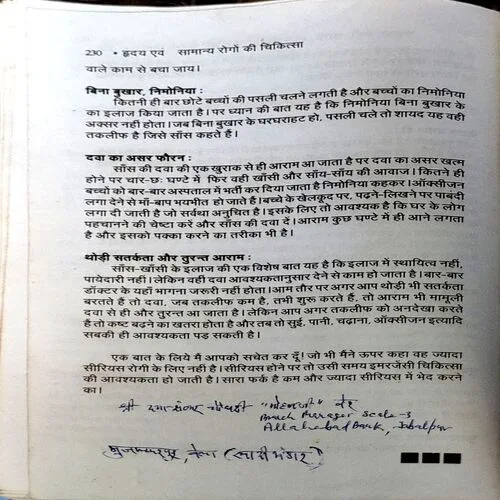 230 • हृदय एवं सामान्य रोगों की चिकित्सा
वाले काम से बचा जाय।
बिना बुखार, निमोनिया :
कितनी ही बार छोटे बच्चों की पसली चलने लगती है और बच्चों का निमोनिया
का इलाज किया जाता है। पर ध्यान की बात यह है कि निमोनिया बिना बुखार के
अक्सर नहीं होता। जब बिना बुखार के घरघराहट हो, पसली चले तो शायद यह वही
तकलीफ है जिसे साँस कहते हैं।
दवा का असर फौरन :
साँस की दवा की एक खुराक से ही आराम आ जाता है पर दवा का असर खत्म
होने पर चार-छः घण्टे में फिर वही खाँसी और साँय-साँय की आवाज। कितने ही
बच्चों को बार-बार अस्पताल में भर्ती कर दिया जाता है निमोनिया कहकर। ऑक्सीजन
लगा देने से माँ-बाप भयभीत हो जाते है। बच्चे के खेलकूद पर, पढ़ने-लिखने पर पाबंदी
लगा दी जाती है जो सर्वथा अनुचित है। इसके लिए तो आवश्यक है कि घर के लोग
पहचानने की चेष्टा करें और साँस की दवा दें। आराम कुछ घण्टे में ही आने लगता
है और इसको पक्का करने का तरीका भी है।
थोड़ी सतर्कता और तुरन्त आराम :
साँस-खाँसी के इलाज की एक विशेष बात यह है कि इलाज में स्थायित्व नहीं,
पायेदारी नहीं। लेकिन वही दवा आवश्यकतानुसार देने से काम हो जाता है। बार-बार
डॉक्टर के यहाँ भागना जरूरी नहीं होता। आम तौर पर अगर आप थोड़ी भी सतर्कता
बरतते हैं तो दवा, जब तकलीफ कम है, तभी शुरू करते हैं, तो आराम भी मामूली
दवा से ही और तुरन्त आ जाता है। लेकिन आप अगर तकलीफ को अनदेखा करते
हैं तो कष्ट बढ़ने का खतरा होता है और तब तो सुई, पानी, चढ़ाना, ऑक्सीजन इत्यादि
सबकी ही आवश्यकता पड़ सकती है।
एक बात के लिये मैं आपको सचेत कर दूँ। जो भी मैंने ऊपर कहा वह ज्यादा
सीरियस रोगी के लिए नहीं है। सीरियस होने पर तो उसी समय इमरजेंसी चिकित्सा
की आवश्यकता हो जाती है। सारा फर्क है कम और ज्यादा सीरियस में भेद करने
का।
श्री
Branch Manager Scale-3
Allahabad Bank, Jabalpur